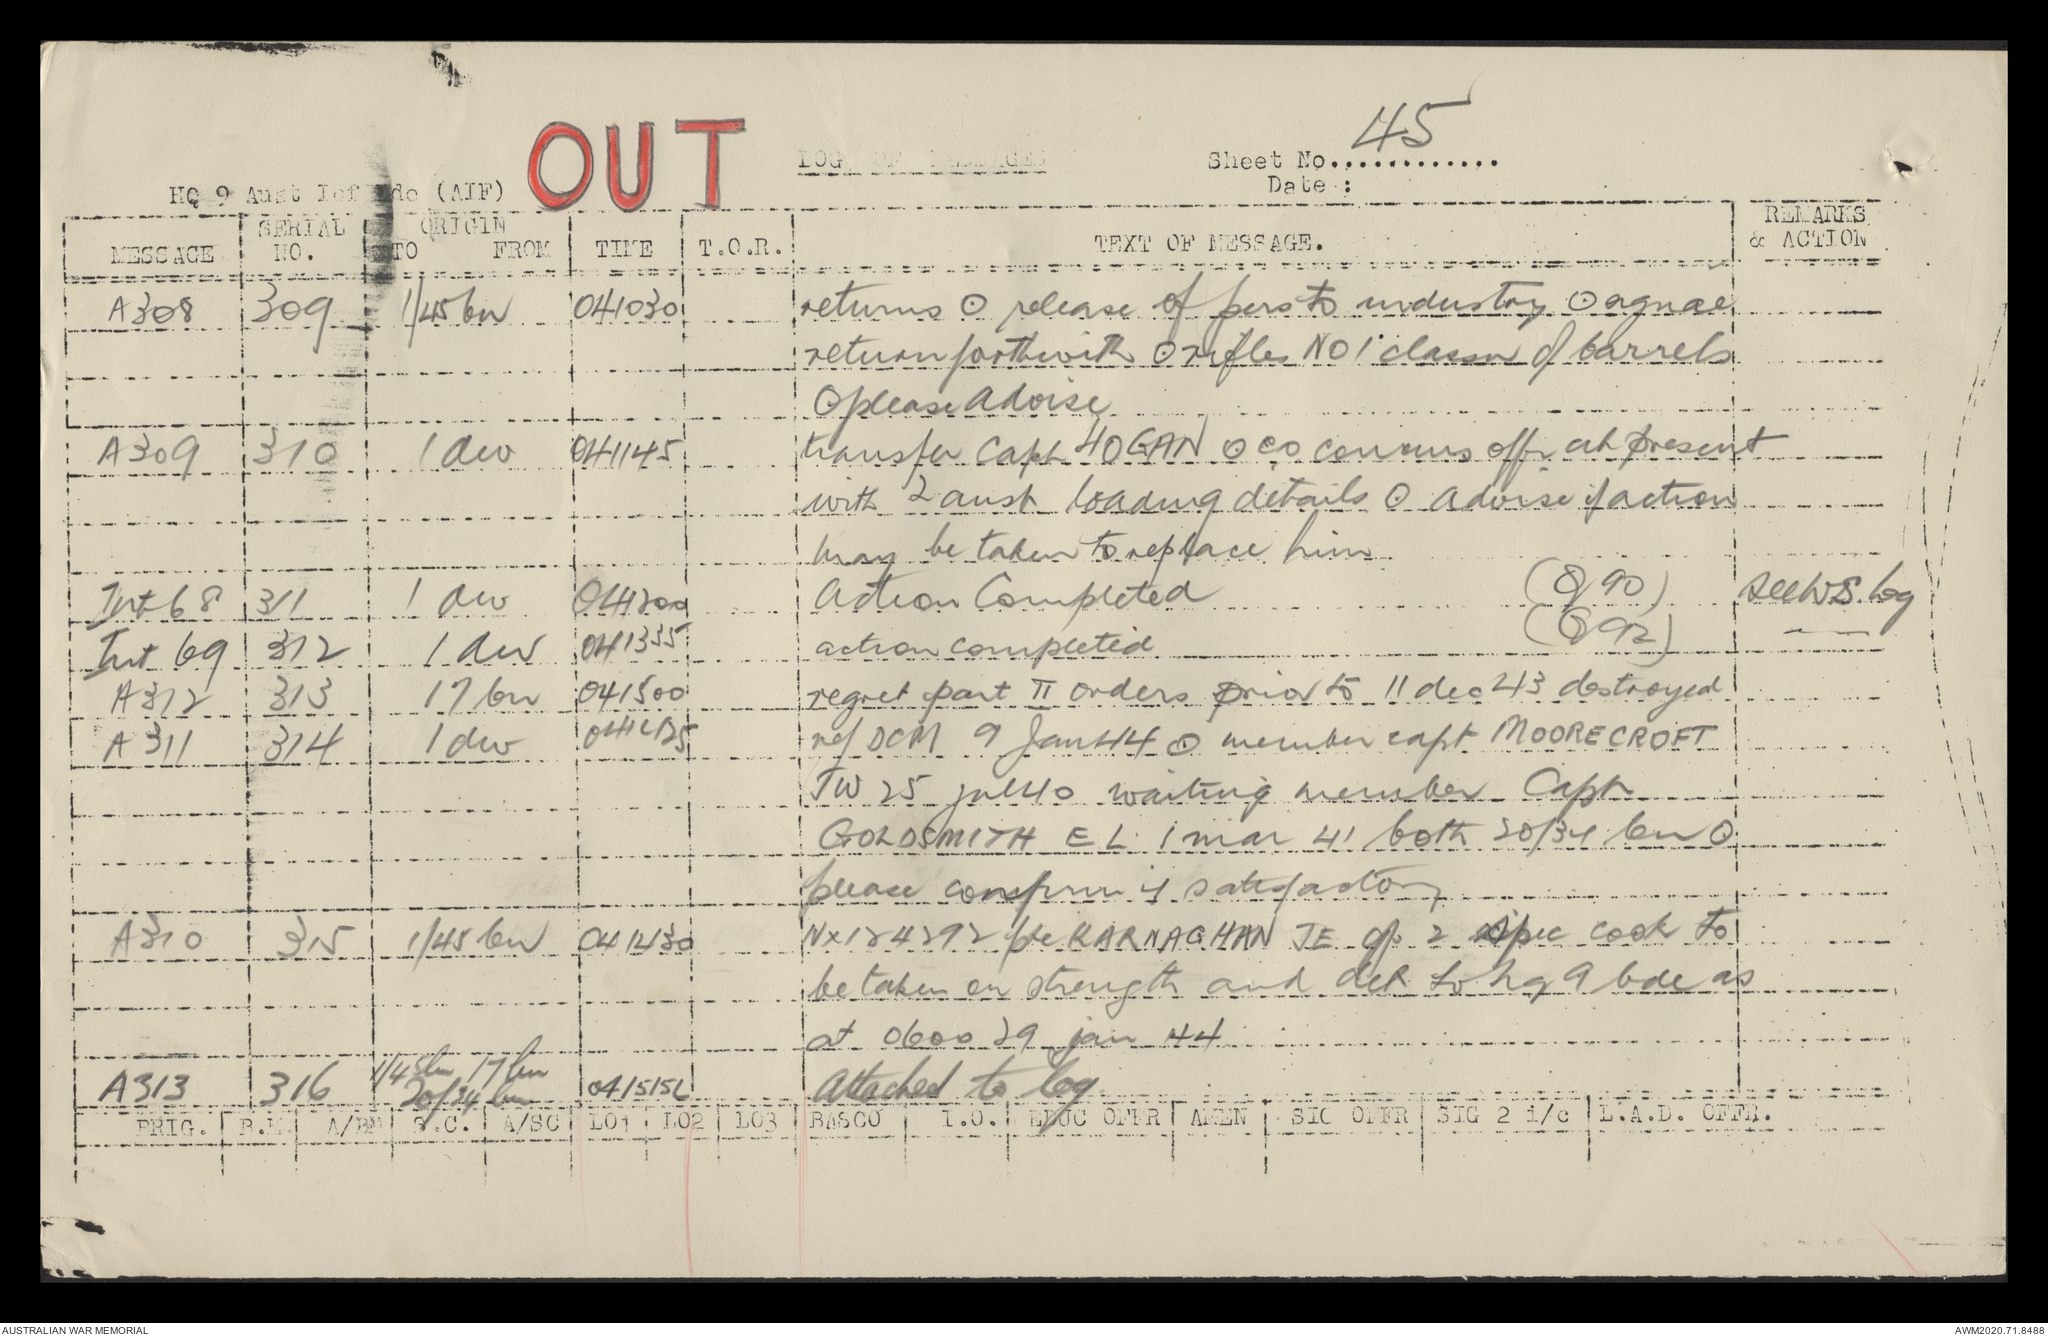 OUT
LOG OF MESSAGES
45
Sheet No.............
Date :
HQ 9 Aust Inf Bde (AIF)
MESSAGE SERIAL NO. ORIGIN TO FROM TIME T.O.R. TEXT OF MESSAGE. REMARKS & ACTION
A308 309 1/45 bn 041030 returns ⊙ release of pers to industry ⊙ agnae
return forthwith ⊙ rifles NO 1 classn of barrels
⊙ please advise
A309 310 1 div 041145 transfer Capt HOGAN ⊙ co concurs offr at present
with 2 aust loading details ⊙ advise if action
may be taken to replace him
Int 68 311 1 div 041200 Action Completed (G 90) see WS. log
Int 69 312 1 div 041335 action completed (G 92)
A312 313 17 bn 041500 regret part II orders prior to 11 dec 43 destroyed
A311 314 1 div ref DCM 9 Jan 44 ⊙ member capt MOORECROFT
JW 25 jul 40 waiting member Capt
GOLDSMITH E L 1 mar 41 both 20/34 bn ⊙
please confirm if satisfactory
A310 315 1/45 bn 041430 NX124292 pte KARNAGHAN JE gp 2 spec cook to
be taken on strength and det to hq 9 bde as
at 0600 29 jan 44
A313 316 1/45 bn, 17 bn 20/34 bn 041515 Attached to log.
BRIG. B.M. A/BM S.C. A/SC LO1 LO2 LO3 BASCO I.O. EDUC OFFR AMEN SIG OFFR SIG 2 i/c L.A.D. OFFR.
AUSTRALIAN WAR MEMORIAL
AWM2020.71.8488